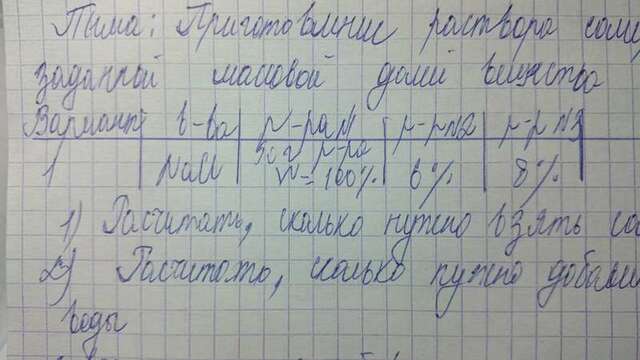 Тема: Приготовление раствора соли
заданной массовой долей вещества
Вариант в-во р-ра N1 р-р N2 р-р N3
1 NaCl 50 г р-ра W = 100% 6% 8%
1) Расчитать, сколько нужно взять
2) Расчитать, сколько нужно
воды